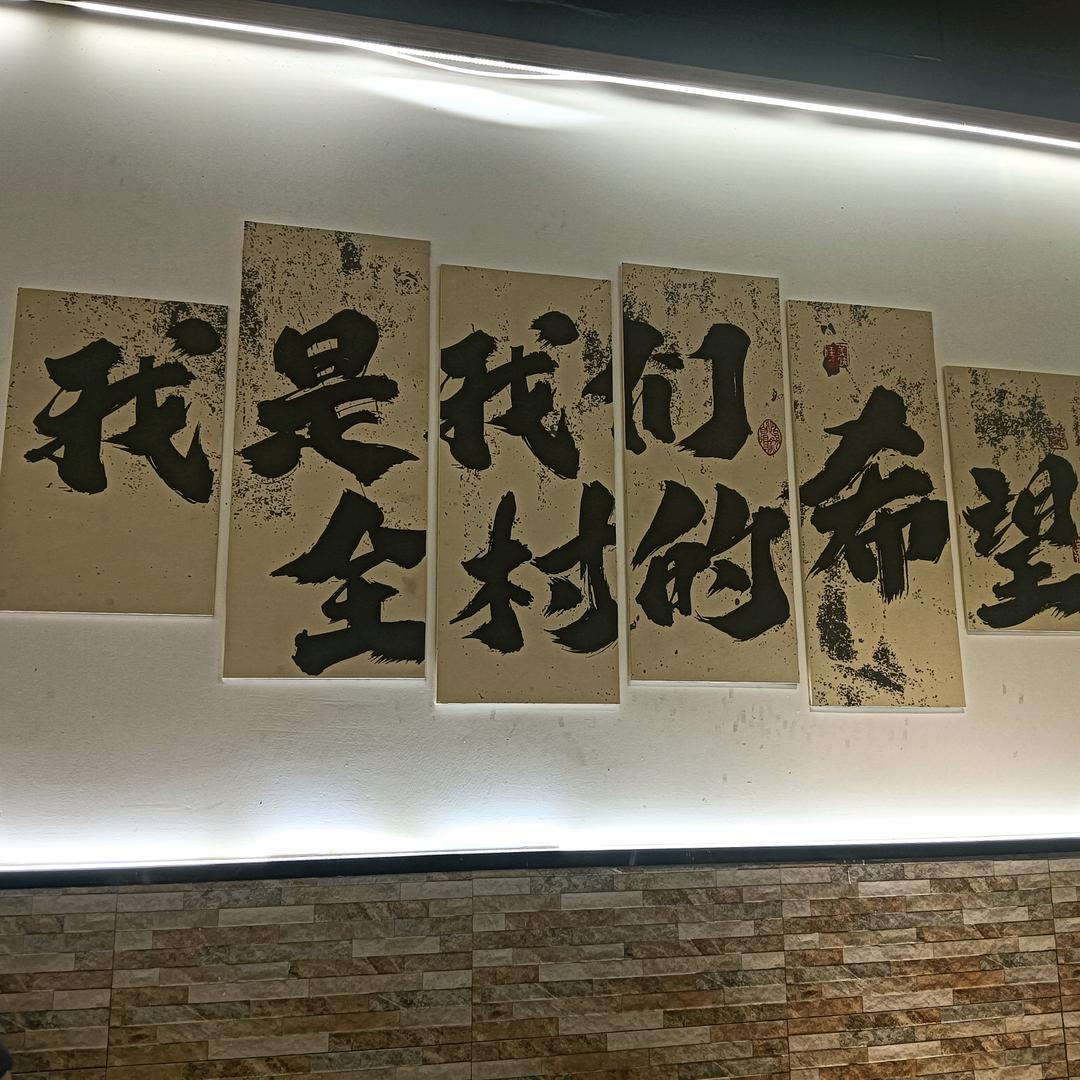 我是我们
全村的希望